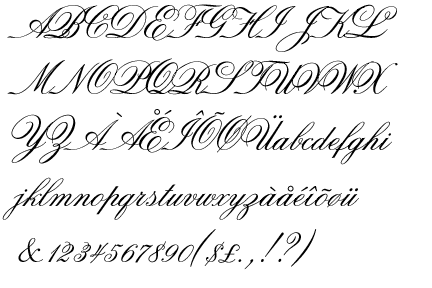 ABCDEFGHIJKL
MNOPQRSTUVWX
YZÀÅÉÎÕØÜabcdefghi
jklmnopqrstuvwxyzàåéîõøü
&1234567890($£.,!?)